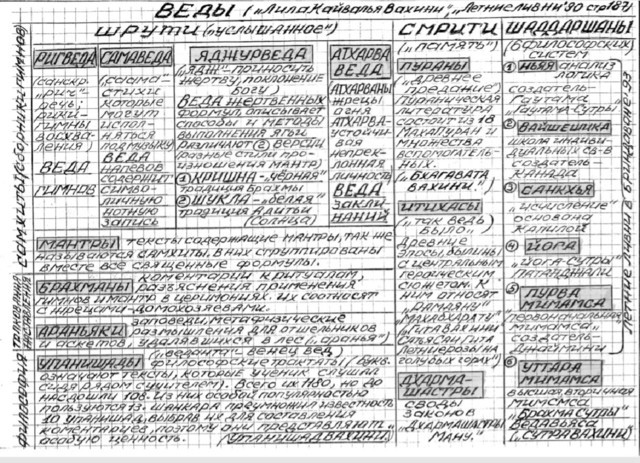 ВЕДЫ („Лила Кайвалья Вахини“, „Летние ливни“90 стр187)
ШРУТИ („услышанное“)
РИГВЕДА
(санскр.
„рич“-
речь;
рики-
гимны
восхва-
ления)
ВЕДА
гимнов
САМАВЕДА
(„сама“-
стихи
которые
могут
испол-
няться
под музыку
ВЕДА
напевов
содержит
симво-
личную
нотную
запись
ЯДЖУРВЕДА
(„ЯДЖ“-приносить
жертву, поклонение
Богу)
ВЕДА жертвенных
формул, описывает
способы и методы
выполнения ягьи
Различают ② версии
(разные стили про-
изношения мантр)
① КРИШНА-„чёрная“
традиция Брахмы
② ШУКЛА-„белая“
традиция Адитьи
(Солнца)
АТХАРВА
ВЕДА
АТХАРВАНЫ
жрецы
огня
АТХАРВА-
устойчи-
вая
непрек-
лонная
личность
ВЕДА
закли-
наний
МАНТРЫ тексты содержащие мантры, так же
называются самхиты. В них сгруппированы
вместе все священные формулы.
БРАХМАНЫ комментарии к ритуалам,
разъяснения применения
гимнов и мантр в церимониях. Их соотносят
с жрецами-домохозяевами.
АРАНЬЯКИ заповеди, метафизические
размышления для отшельников
и аскетов, удалявшихся в лес („аранья“)
УПАНИШАДЫ („веданта“-венец вед)
философские трактаты) /букв.
означают тексты, которые ученик слушал
сидя рядом с учителем). Всего их 1180, но до
нас дошли 108. Из них особой популярностью
пользуются 13. Шанкара приумножил известность
10 упанишад, выбрав их для составления
комментариев, поэтому они представляют
особую ценность. („УПАНИШАД ВАХИНИ“)
СМРИТИ
(„память“)
ПУРАНЫ
(„древнее
предание)
Пураническая
литература
состоит из 18
Махапуран и
множества
вспомогатель-
ных.
(„БХАГАВАТА
ВАХИНИ.“)
ИТИХАСЫ
(„так ведь
было“)
Древние
эпосы, былины
с центральным
героическим
сюжетом. К
ним относят
„Рамаяну“
„Махабхарату“
(„ГИТА ВАХИНИ“
ДХАРМА-
ШАСТРЫ
Своды
законов
„ДХАРМАШАСТРЫ
МАНУ.“
ШАДДАРШАНЫ
(6 философских
систем
① НЬЯЯ анализ
логика
создатель-
Гаутама
„Ньяя Сутры
② ВАЙШЕШИКА
школа индиви-
дуальных св-в
создатель-
КАНАДА
③ САНКХЬЯ
„исчисление“
основана
КАПИЛОЙ
④ ЙОГА
„ЙОГА-СУТРЫ
ПАТАНДЖАЛИ
⑤ ПУРВА
МИМАМСА
„первоначальная
мимамса“
создатель-
ДЖАЙМИНИ
⑥ УТТАРА
МИМАМСА
высшая, вторичная
мимамса
„БРАХМА СУТРЫ“
ВЕДАВЬЯСА
(„СУТРА ВАХИНИ)